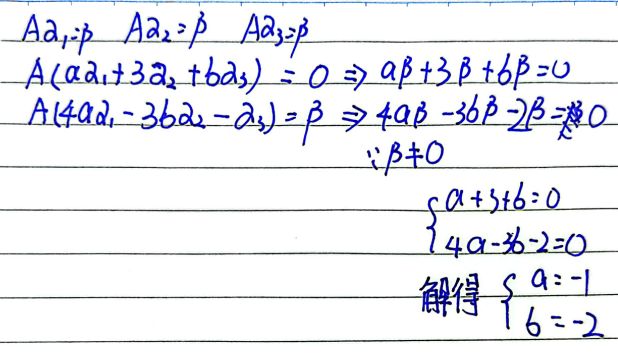 Aα₁=β Aα₂=β Aα₃=β
A(aα₁+3α₂+bα₃) = 0 ⇒ aβ+3β+bβ=0
A(4aα₁-3bα₂-α₃)=β ⇒ 4aβ-3bβ-2β=0
∵β≠0
{a+3+b=0
4a-3b-2=0
解得 {a=-1
b=-2